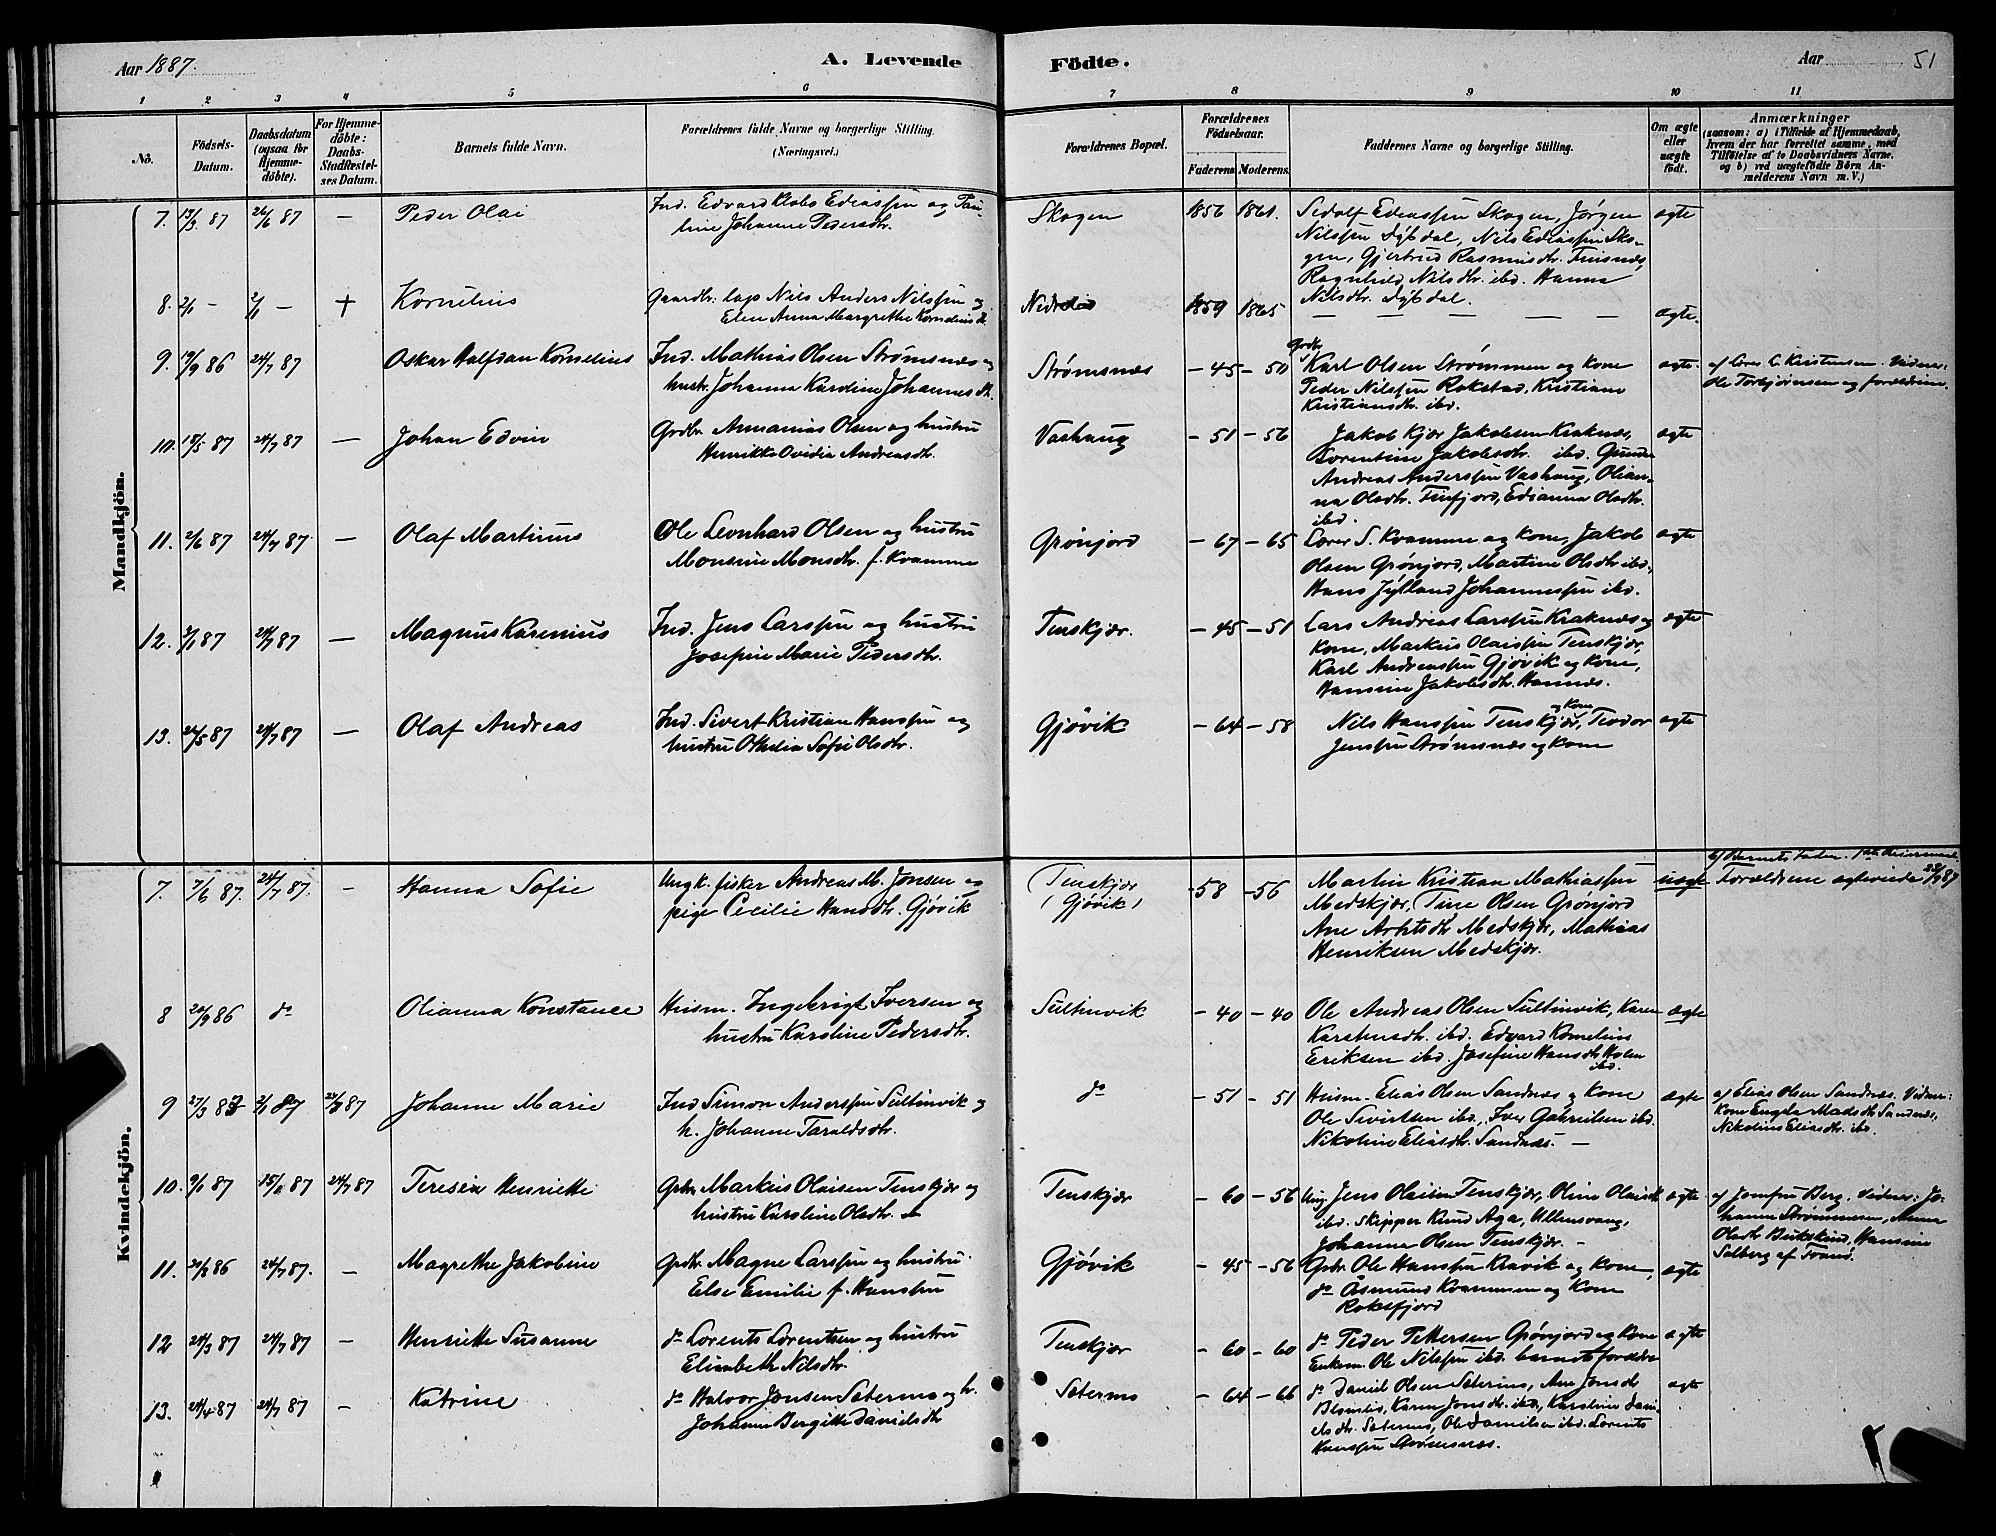 Aar 1887.
A. Levende
Födte.
Aar 51
1 2 3 4 5 6 7 8 9 10 11
No.
Födsels-
Datum.
Daabsdatum
(ogsaa for
Hjemme-
döbte).
For Hjemme-
döbte:
Daabs-
Stadfæstel-
ses Datum.
Barnets fulde Navn.
Forældrenes fulde Navne og borgerlige Stilling.
(Næringsvei.)
Forældrenes Bopæl.
Forældrenes
Födselsaar.
Faderens Moderens.
Faddernes Navne og borgerlige Stilling.
Om ægte
eller
uægte
födt.
Anmærkninger
(saasom: a) i Tilfælde af Hjemmedaab,
hvem der har forrettet samme, med
Tilföielse af to Daabsvidners Navne,
og b) ved uægtefödte Börn An-
melderens Navn m. V.)
Mandkjön.
7. 13/3 87 26/6 87 — Peder Olai
Ind. Edvard Klobs Ediassen og Pau-
line Johanne Pedersdtr.
Skogen 1856 1861.
Sedolf Ediassen Skogen, Jørgen
Nilssen Dybdal, Nils Ediassen Sko-
gen, Gjertrud Rasmusdtr. Finsnæs,
Ragnhild Nilsdtr. ibd. Hanna
Nilsdtr. Dybdal.
ægte
8. — — + Kornelius
Gaardbr. Nils Anders Nilssen og
Elen Anna Margrethe Korneliusdtr.
1859 1865 — — — — — ægte.
9. 19/9 86 24/7 87 Oskar Halfdan Kornelius
Ind. Mathias Olsen Strømsnæs og
hustr. Johanna Kardine Johannesdtr.
Strømsnæs —45 —50
Grdbr.
Karl Olsen Strømmen og Kone
Peder Nilssen Rokstad, Kristiane
Kristiansdtr. ibd.
ægte.
af Lærer C. Kristensen. Vidner:
Ole Torbjørnsen og forældrene.
10. 18/5 87 24/7 87 — Johan Edvin
Grdbr. Annanias Olsen og hustru
Henrikke Ovidia Andreasdtr.
Vashaug —51 —56
Jakob Kjær Jakobsen Kraknæs,
Lorentine Jakobsdtr. ibd.
Andreas Anderssen Vashaug, Olian-
na Olsdtr. Finfjord, Edianna Olsdtr.
ibd.
ægte
11. 2/6 87 24/7 87. — Olaf Martinus
Ole Leonhard Olsen og hustru
Monsine Monsdtr. f. Kvamme
Grønjord —67 —65
Lærer S. Kvamme og Kone, Jakob
Olsen Grønjord, Martine Olsdtr. ibd.,
Hans Jylland Johannessen ibd.
ægte
12. 87 24/7 87 — Magnus Karenius
Ind. Jens Larssen og hustru
Josefine Marie Pedersdtr.
Tenskjær. —45 —51
Lars Andreas Larssen Kraknæs og
Kone, Markus Olaissen Tenskjær,
Karl Andreassen Gjøvik og Kone,
Hansine Jakobsdtr. Hannæs.
ægte
13. 24/5 87 24/7 87 — Olaf Andreas
Ind. Sivert Kristian Hanssen og
hustru Othelia Sofie Olsdtr.
Gjøvik —64 —58
og Kone
Nils Hanssen Tenskjær, Teodor
Jenssen Strømsnæs og Kone
ægte
Kvindekjön.
7. 7/6 87. 24/7 87. — Hanna Sofie
Ungk. fisker Andreas M. Jensen og
pige Cecilie Hansdtr. Gjøvik
(Tenskjær
(Gjøvik)
—58 —56
Martin Kristian Mathiassen
Medskjær, Tine Olsen Grønjord
Ane Medskjær, Mathias
Henriksen Medskjær.
uægte
b) Barnets Fader.
Forældrene ægteviede 87
8 20/9 86 do Olianna Konstance
Husm. Ingebrigt Iversen og
hustru Karoline Pedersdtr.
Sultinvik —40 —40
Ole Andreas Olsen Sultinvik, Karen
Karstensdtr. ibd. Edvard Kornelius
Eriksen ibd. Josefine Hansdtr. Holen
ibd.
ægte
9 27/3 87 87 87 Johanne Marie
Ind Simon Anderssen Sultinvik og
h. Johanne Taraldsdtr.
do —51 —51
Husm. Elias Olsen Sandnæs og Kone
Ole Sivertsen ibd., Iver Gabrielsen ibd.
Nikoline Eliasdtr. Sandnæs. —
ægte
af Elias Olsen Sandnæs. Vidner:
Kone Engela Madsdtr. Sandnæs,
Nikoline Eliasdtr. ibd.
10. 87 15/6 87 24/7 87 Teresia Henriette
Grdbr. Markus Olaisen Tenskjær og
hustru Karoline Olsdtr.
Tenskjær —60 —56
Ung. Jens Olaisen Tenskjær, Oline Olaisdtr.
ibd. Skipper Knud Aga, Ullensvang,
Johanna Olsen Tenskjær. —
ægte
af Jomfru Berg. Vidner: Jo-
hanna Strømmesen, Anna
Olsdtr. Bukskind, Hansine
Solberg af Tranø.
11. 86 24/7 87. — Magrethe Jakobine
Grdbr. Magne Larssen og hustru
Else Emilie f. Hanssen
Gjøvik —45 —56
Grdbr. Ole Hanssen Kravik og Kone,
do Åsmund Kvammen og Kone
Roksfjord
ægte
12 24/3 87 24/7 87 — Henriette Susanne
do Lorents Lorentsen og hustru
Elisabeth Nilsdtr.
Tenskjær —60 —60
do Peder Pettersen Grønjord og Kone
Enkem. Ole Nilssen ibd. barnets forældre
ægte
13. 24/4 87 24/7 87 — Katrine
do Halvor Jensen Sætermo og h.
Johanne Bergitte Danielsdtr.
Sætermo —64 —66
do Daniel Olsen Sætermo, Ane Jonsdtr.
Blomlis, Karen Jonsdtr. ibd., Karoline Dani-
elsdtr. Sætermo, Ole Danielsen ibd. Lorents
Hanssen Strømsnæs.
ægte